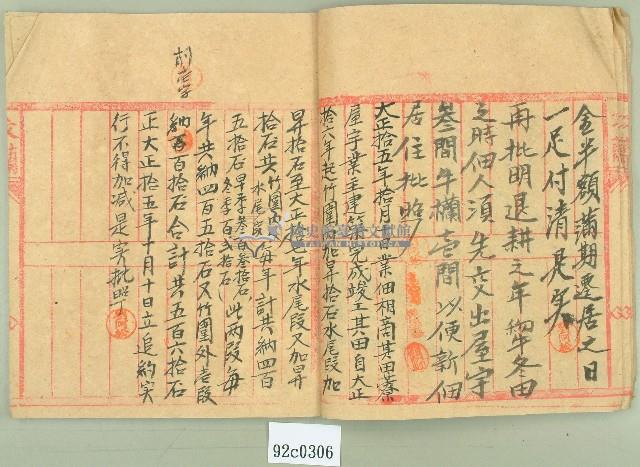 金半額滿期遷居之日
一足付清是實
再批明退耕之年御冬田
之時佃人須先交出屋宇
叁間牛欄壱間以便新佃
居住批照
大正拾五年拾月 日業佃相商其田寮
屋宇業主建築完成竣工其田自大正
拾六年起竹圍內加昇拾石水尾段加
昇拾石至大正 七年水尾段又加昇
拾石共竹圍內水尾段每年計共納四百
五拾石早季叁百叁拾石冬季百弍拾石此兩段每
年共納四百五拾石又竹圍外壱段
納百拾石合計共五百六拾石
正大正拾五年十月十日立追約實
行不得加減是實批照
92c0306